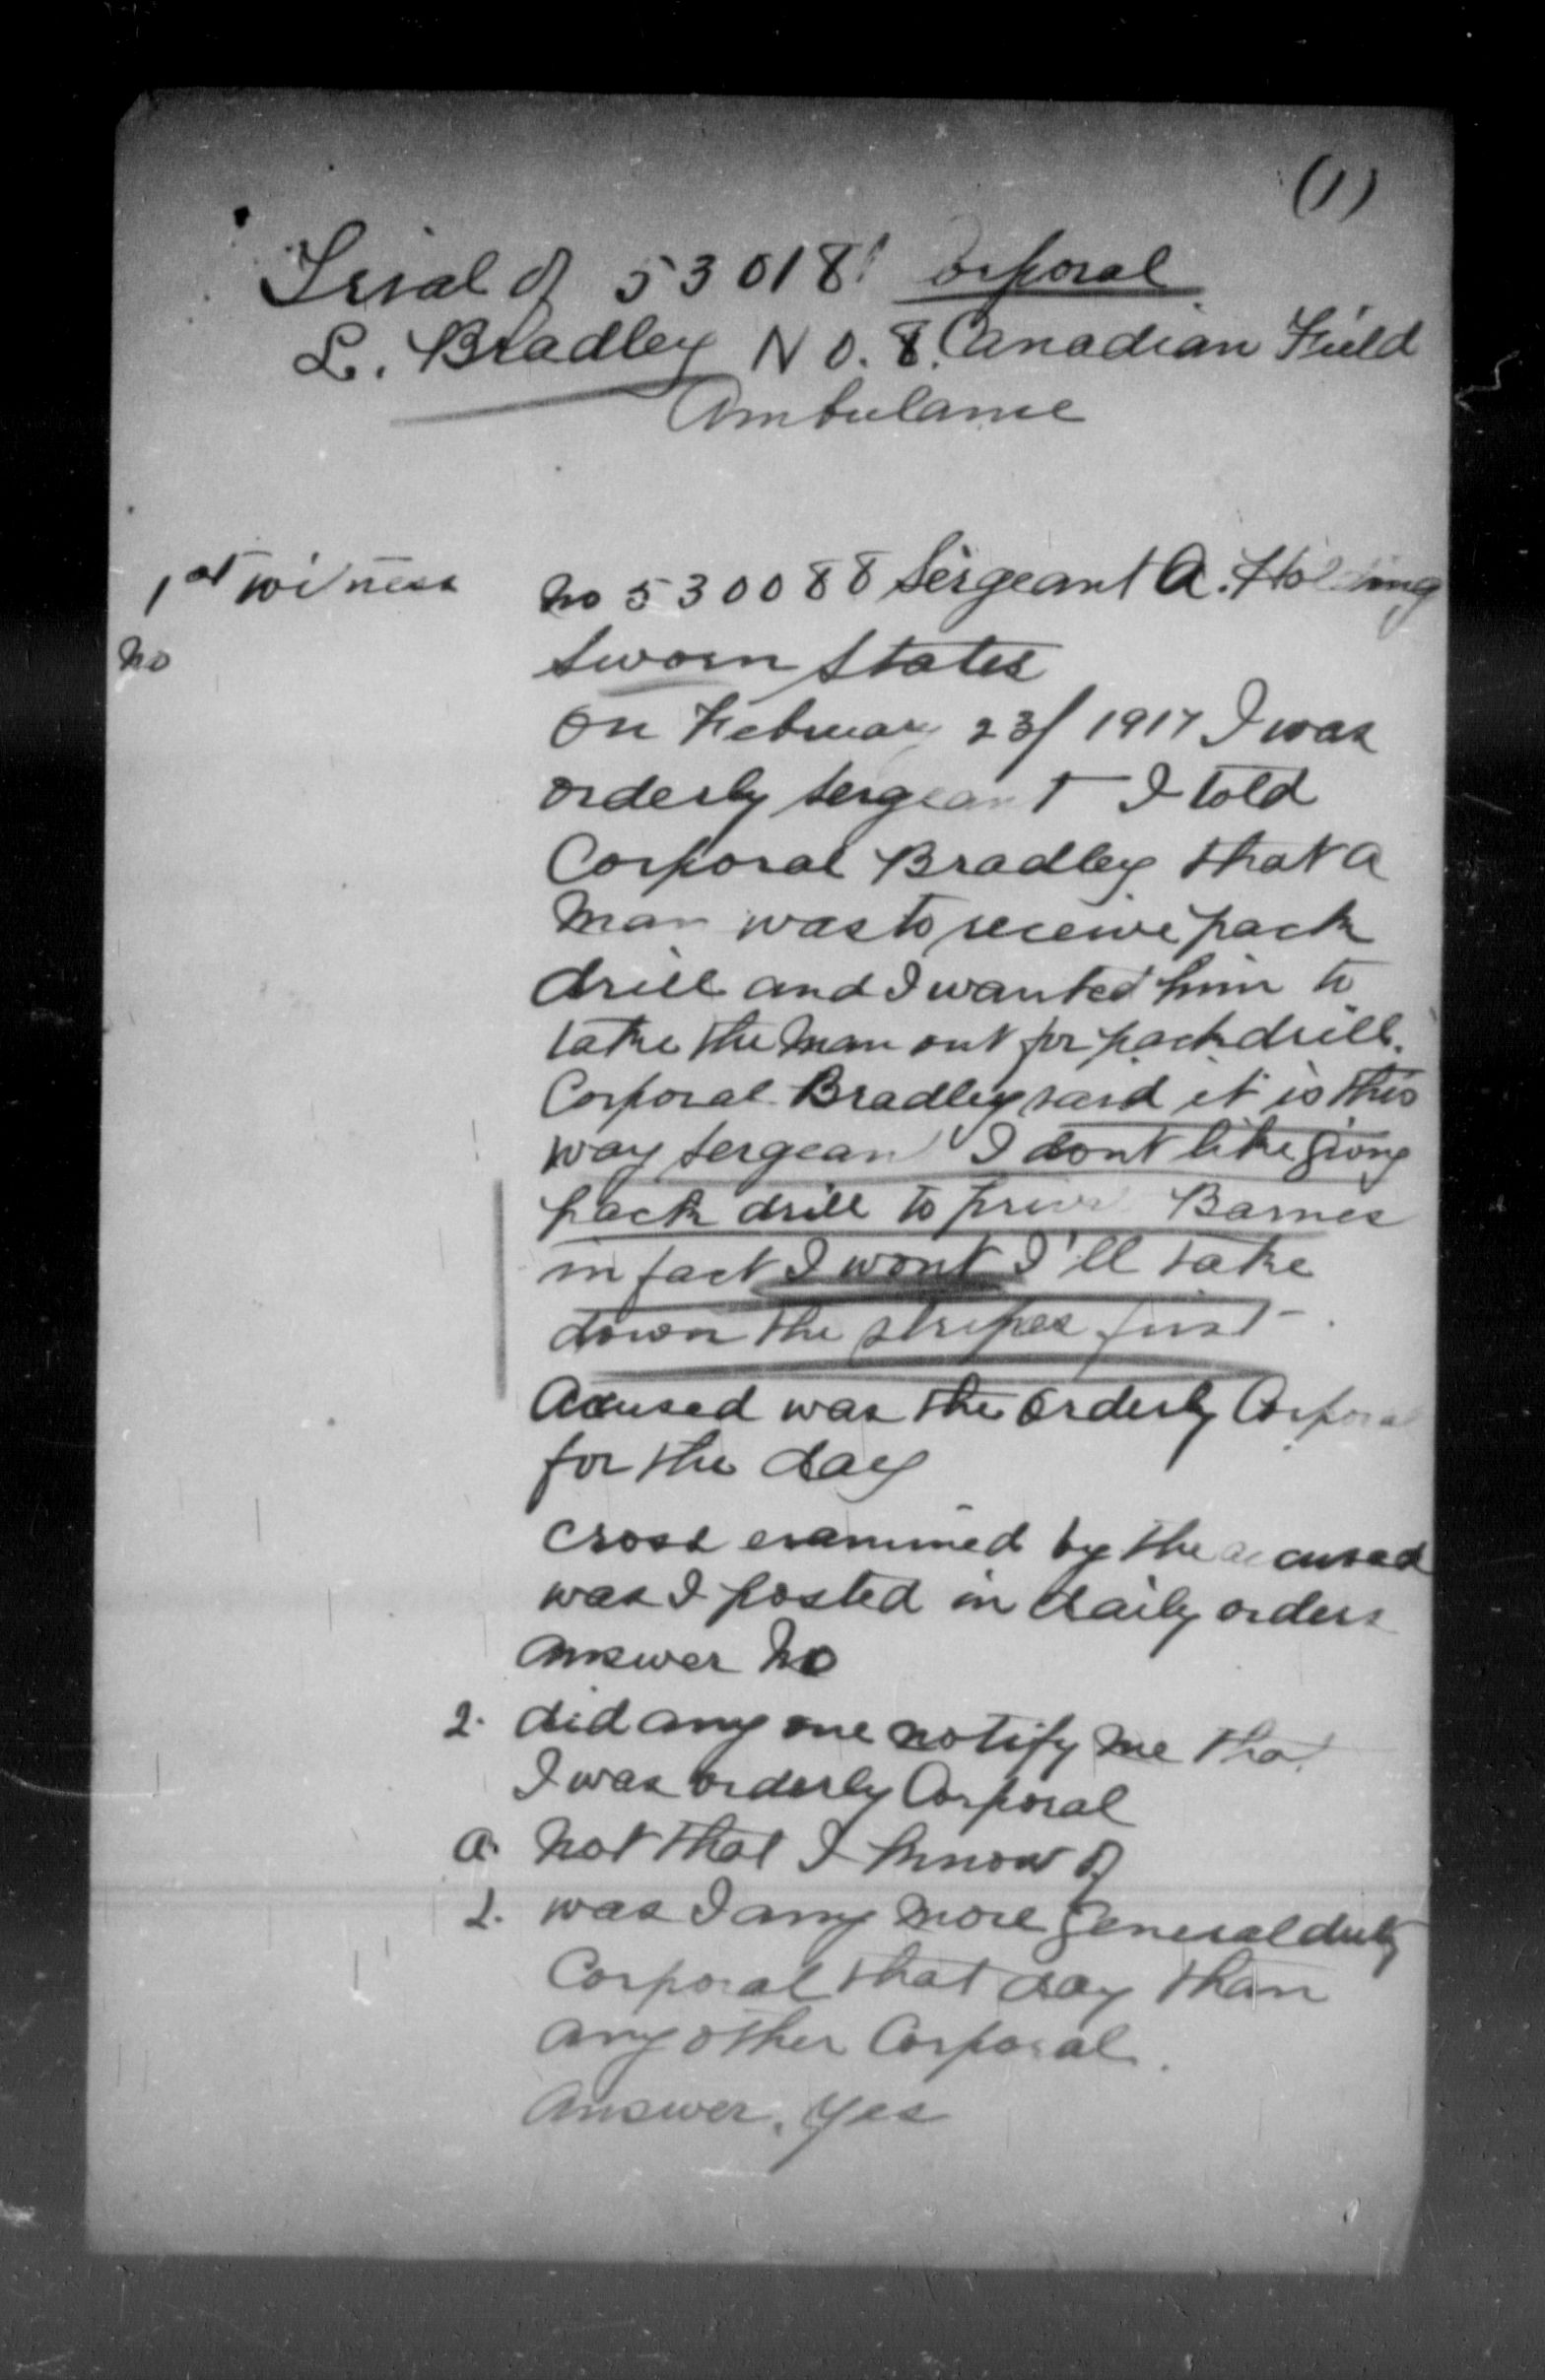 (1)
Trial of 53018 Corporal
L. Bradley No. 8. Canadian Field
Ambulance
1st witness
No 530088 Sergeant A. Holding
No
Sworn States
On February 23/ 1917 I was
orderly sergeant I told
Corporal Bradley that a
man was to receive pack
drill and I wanted him to
take the man out for pack drill.
Corporal Bradley said it is this
way sergeant I dont like giving
pack drill to Barnes
in fact I wont I'll take
down the stripes first.
Accused was the orderly Corporal
for the day
cross examined by the accused
was I posted in daily orders
answer No
2. did any one notify me that
I was orderly Corporal
A. Not that I know of
2. was I any more general duty
Corporal that day than
any other Corporal.
Answer. Yes